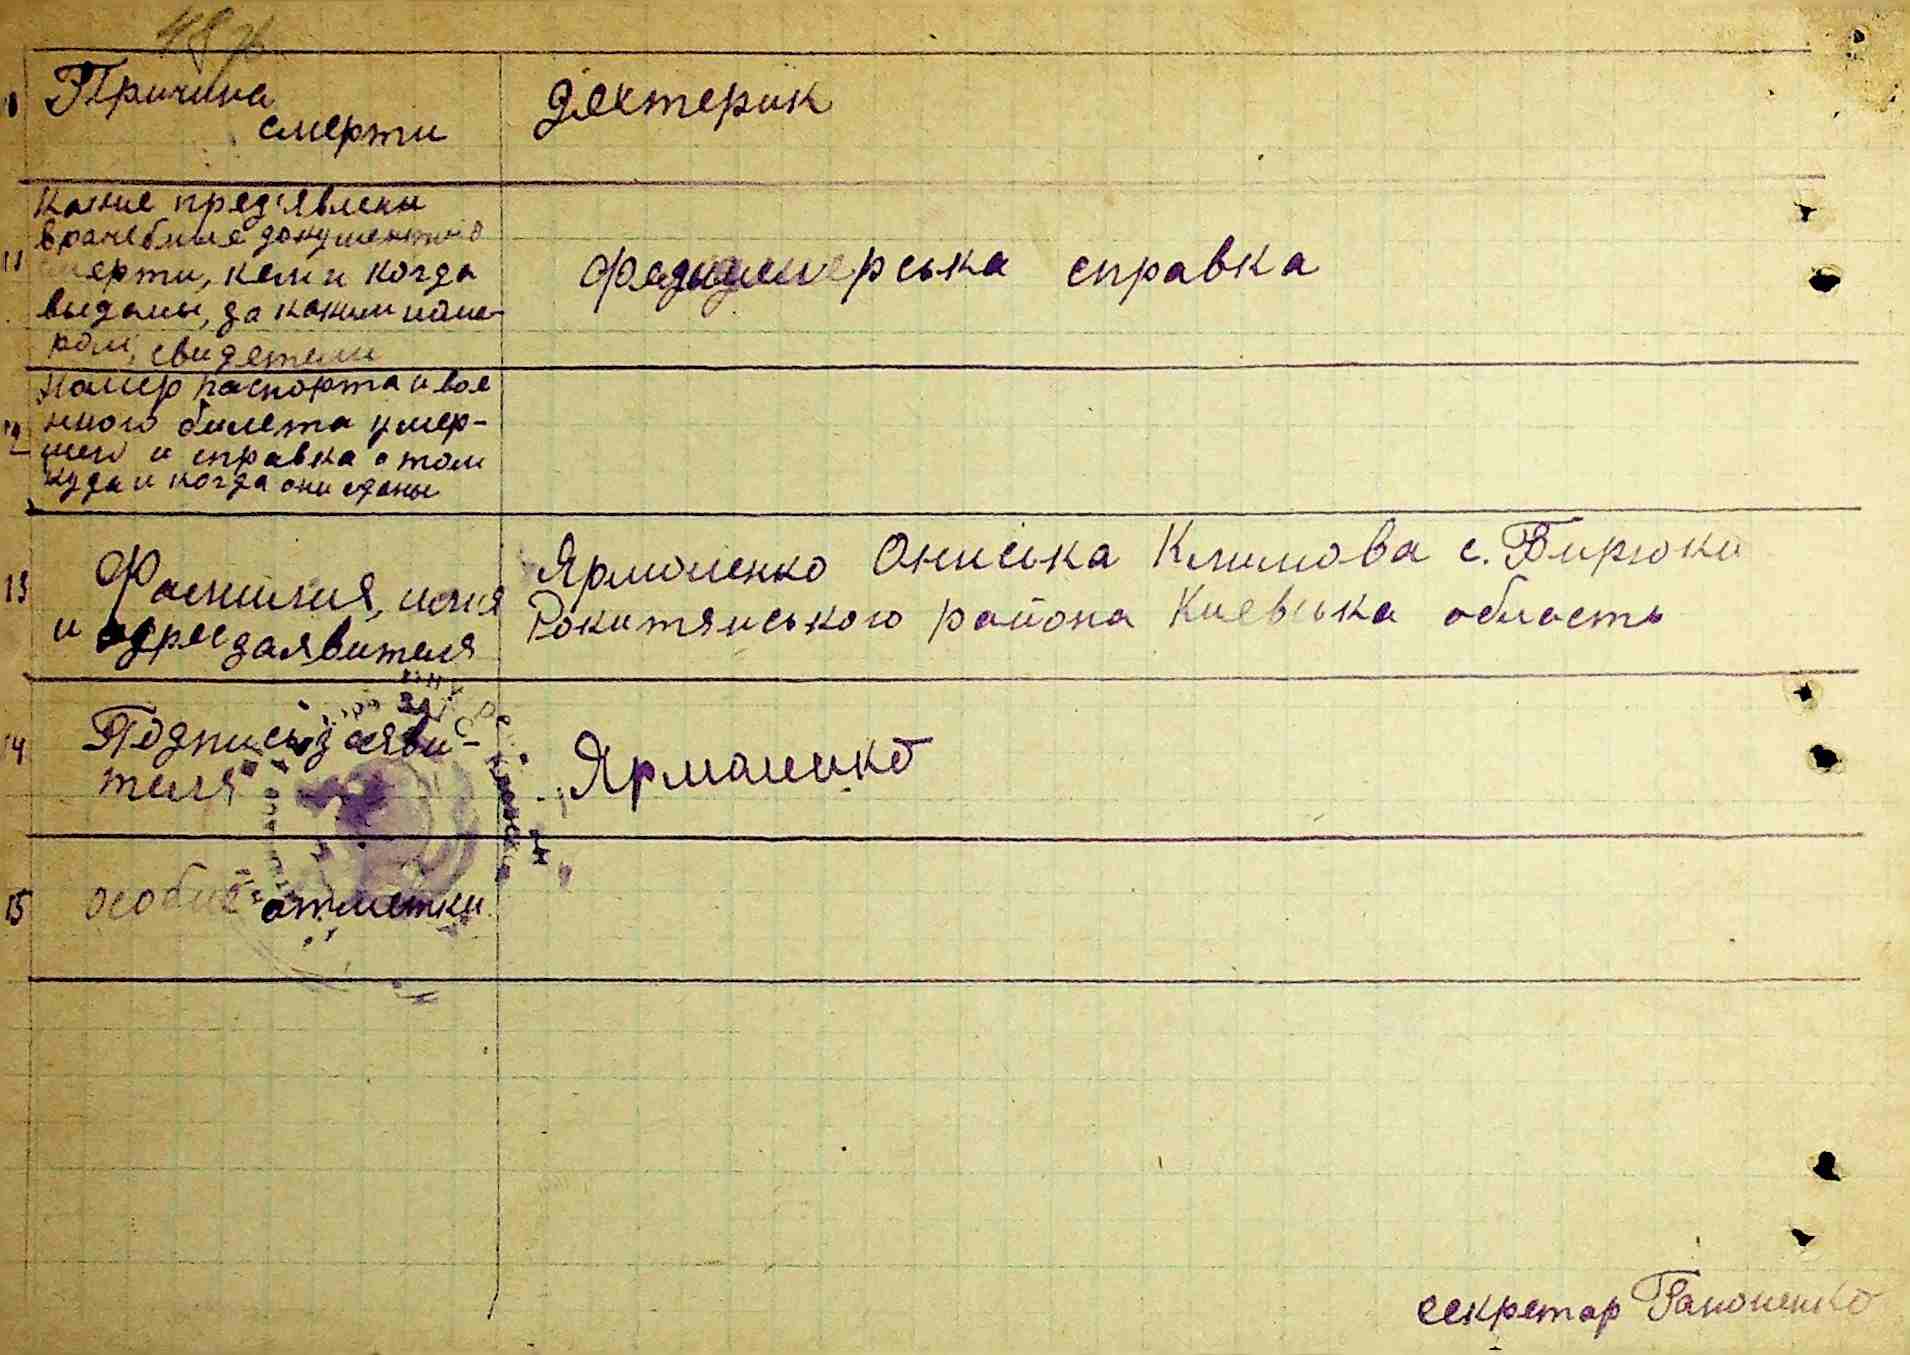 Причина
смерти
Дехтерик
11
Какие пред'явлены
врачебные документы о
смерти, кем и когда
выданы, за каким номе-
ром, свидетели
справка
12
Номер паспорта и вое
нного билета умер-
шего и справка о том
куда и когда они сданы
13
Фамилия, имя
и адрес заявителя
Ярмоленко Ониська Климова с. Бирюки
Рокитянського района Киевська область
14
Подпись заяви-
теля
Ярмоленко
15
особые отметки
секретар Гапоненко